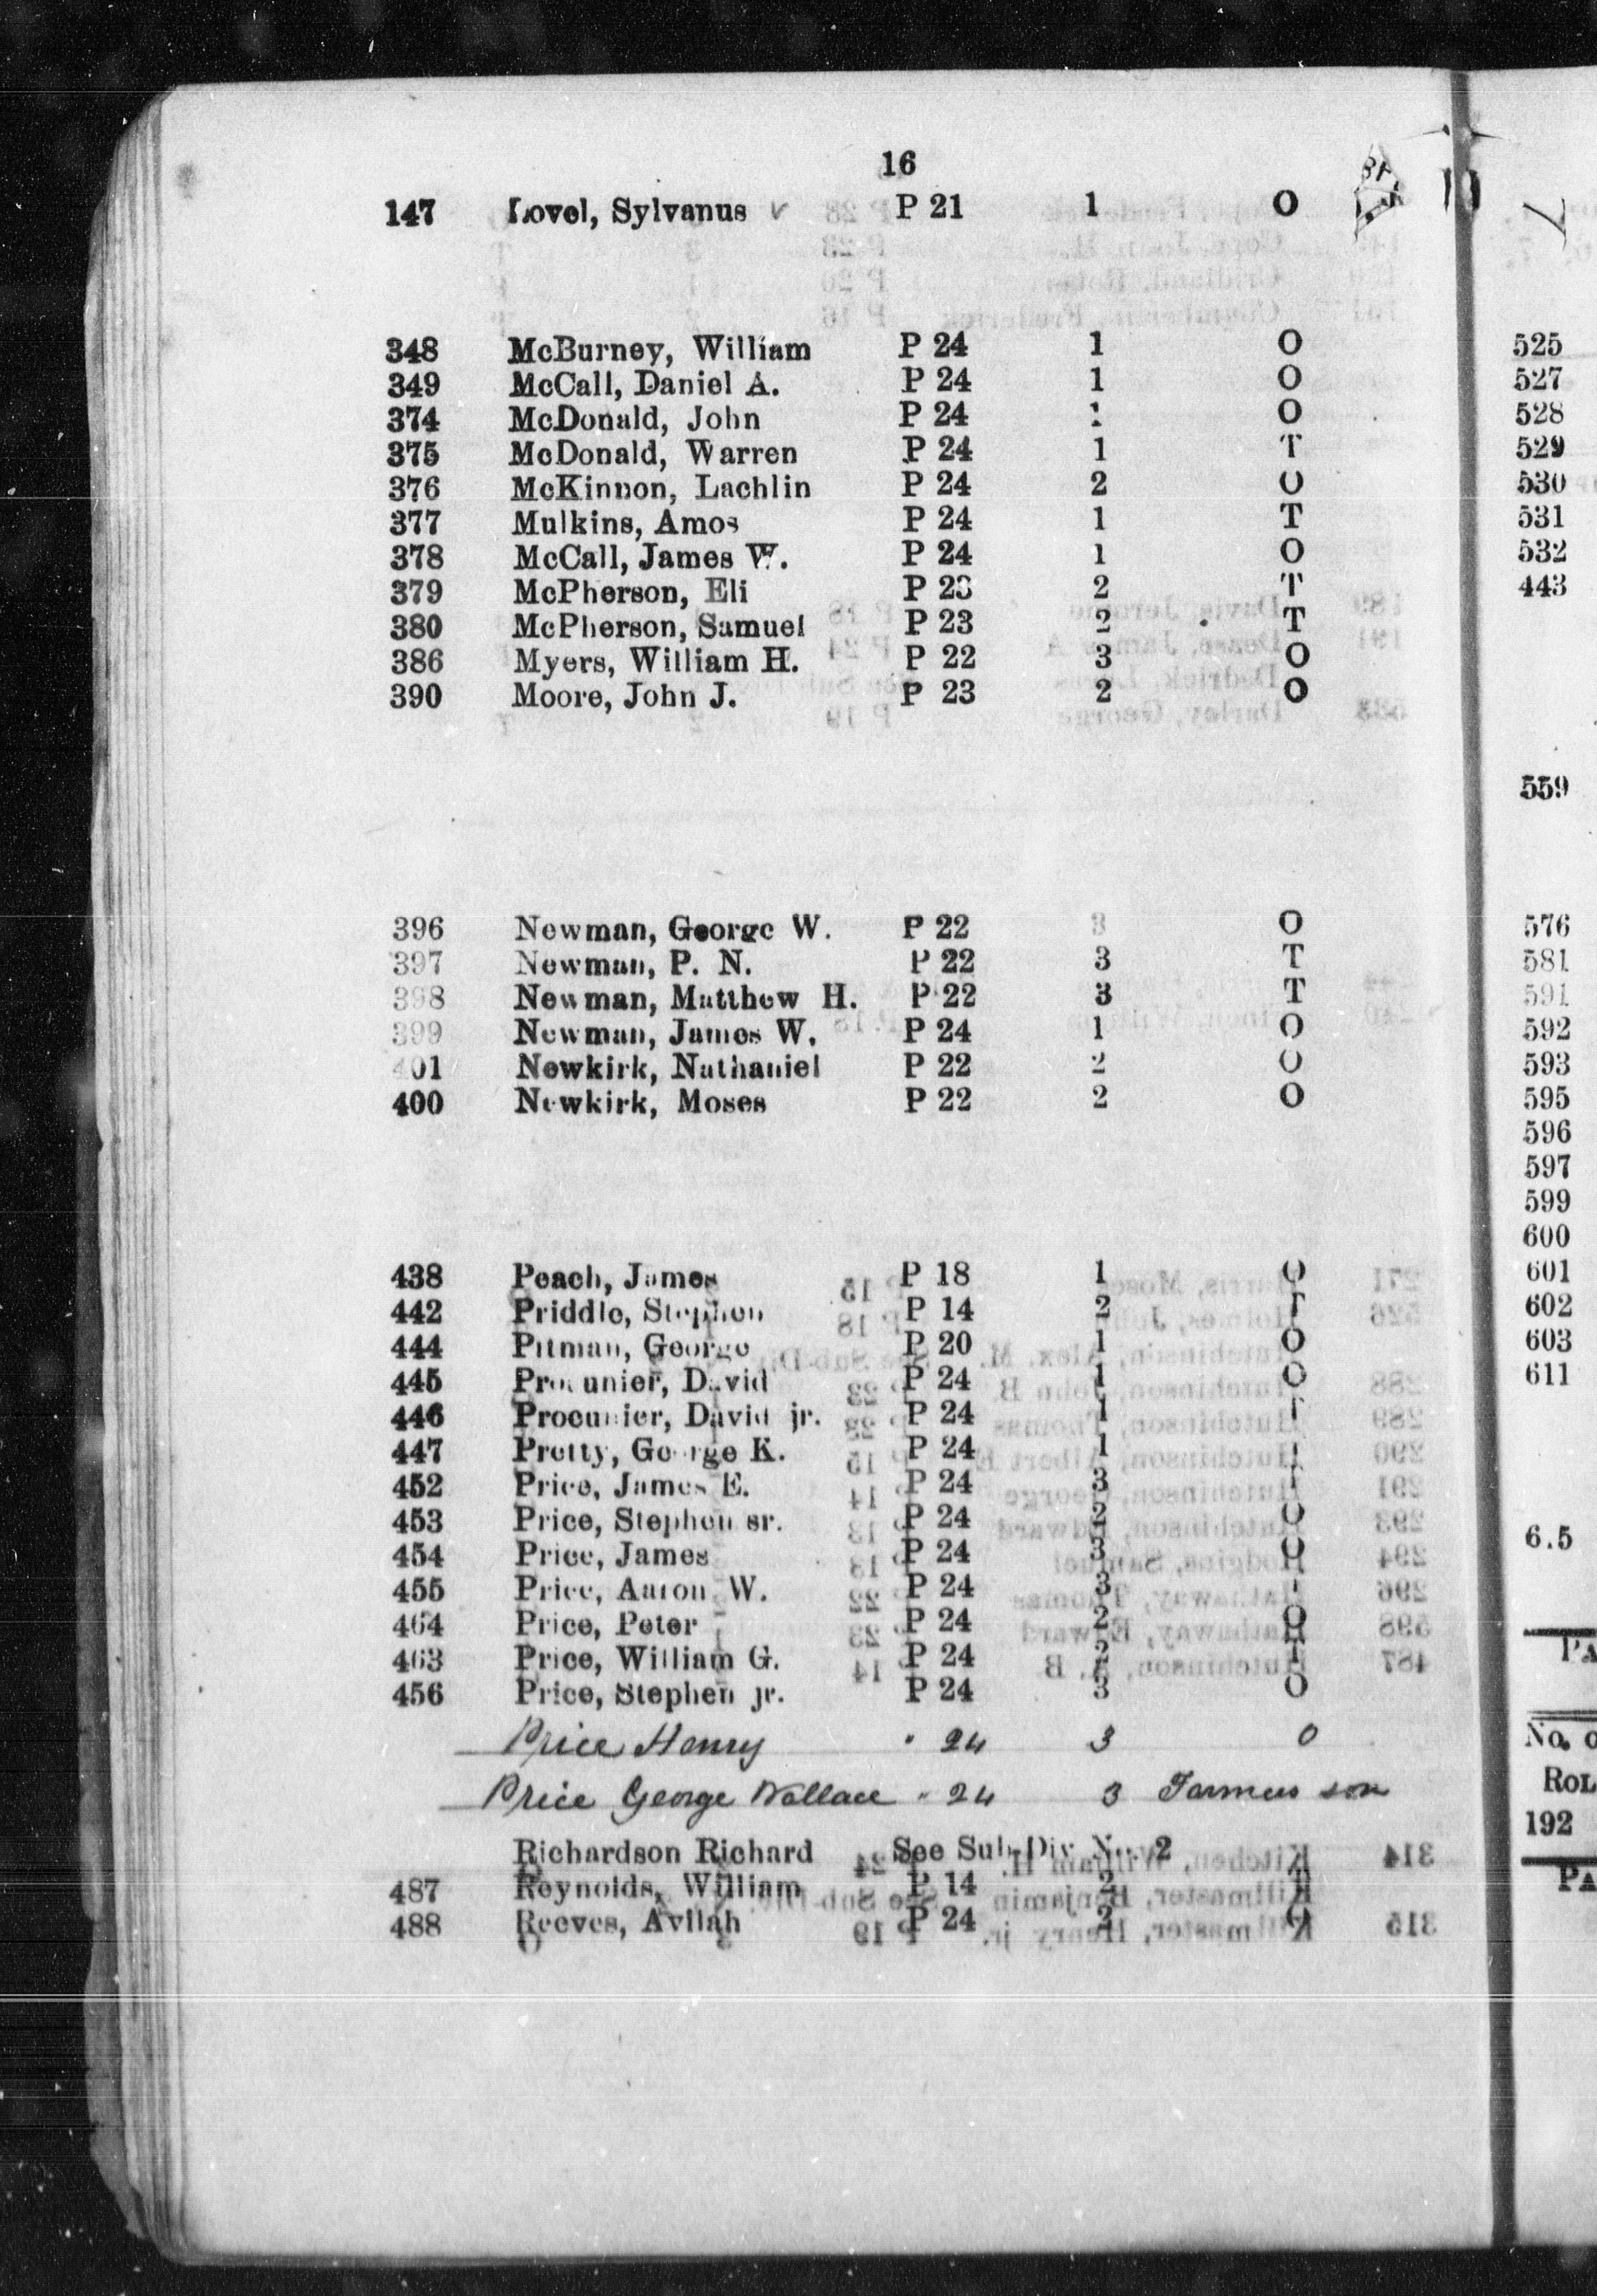 16
147 Lovel, Sylvanus P 21 1 O
348 McBurney, William P 24 1 O
349 McCall, Daniel A. P 24 1 O
374 McDonald, John P 24 1 O
375 McDonald, Warren P 24 1 T
376 McKinnon, Lachlin P 24 2 O
377 Mulkins, Amos P 24 1 T
378 McCall, James W. P 24 1 O
379 McPherson, Eli P 23 2 T
380 McPherson, Samuel P 23 2 T
386 Myers, William H. P 22 3 O
390 Moore, John J. P 23 2 O
396 Newman, George W. P 22 3 O
397 Newman, P. N. P 22 3 T
398 Newman, Matthew H. P 22 3 T
399 Newman, James W. P 24 1 O
401 Newkirk, Nathaniel P 22 2 O
400 Newkirk, Moses P 22 2 O
438 Peach, James P 18 1 O
442 Priddle, Stephen P 14 2 T
444 Pitman, George P 20 1 O
445 Procunier, David P 24 1 O
446 Procunier, David jr. P 24 1 T
447 Pretty, George K. P 24 1
452 Price, James E. P 24 3 T
453 Price, Stephen sr. P 24 2 O
454 Price, James P 24 3 O
455 Price, Aaron W. P 24 3
464 Price, Peter P 24 2 O
463 Price, William G. P 24 2 T
456 Price, Stephen jr. P 24 3 O
Price Henry " 24 3 O
Price George Wallace " 24 3 Farmers son
Richardson Richard See Sub-Div No. 2
487 Reynolds, William P 14 2
488 Reeves, Avilah P 24 2 O
525
527
528
529
530
531
532
443
559
576
581
591
592
593
595
596
597
599
600
601
602
603
611
6.5
PA
No. o
ROL
192
PA